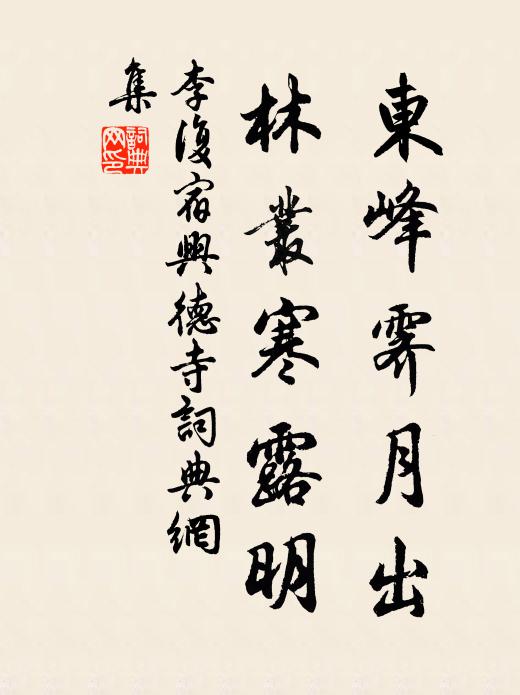 東峰霽月出
林叢寒露明
李復宿興德寺詞典網
集
詞典網印